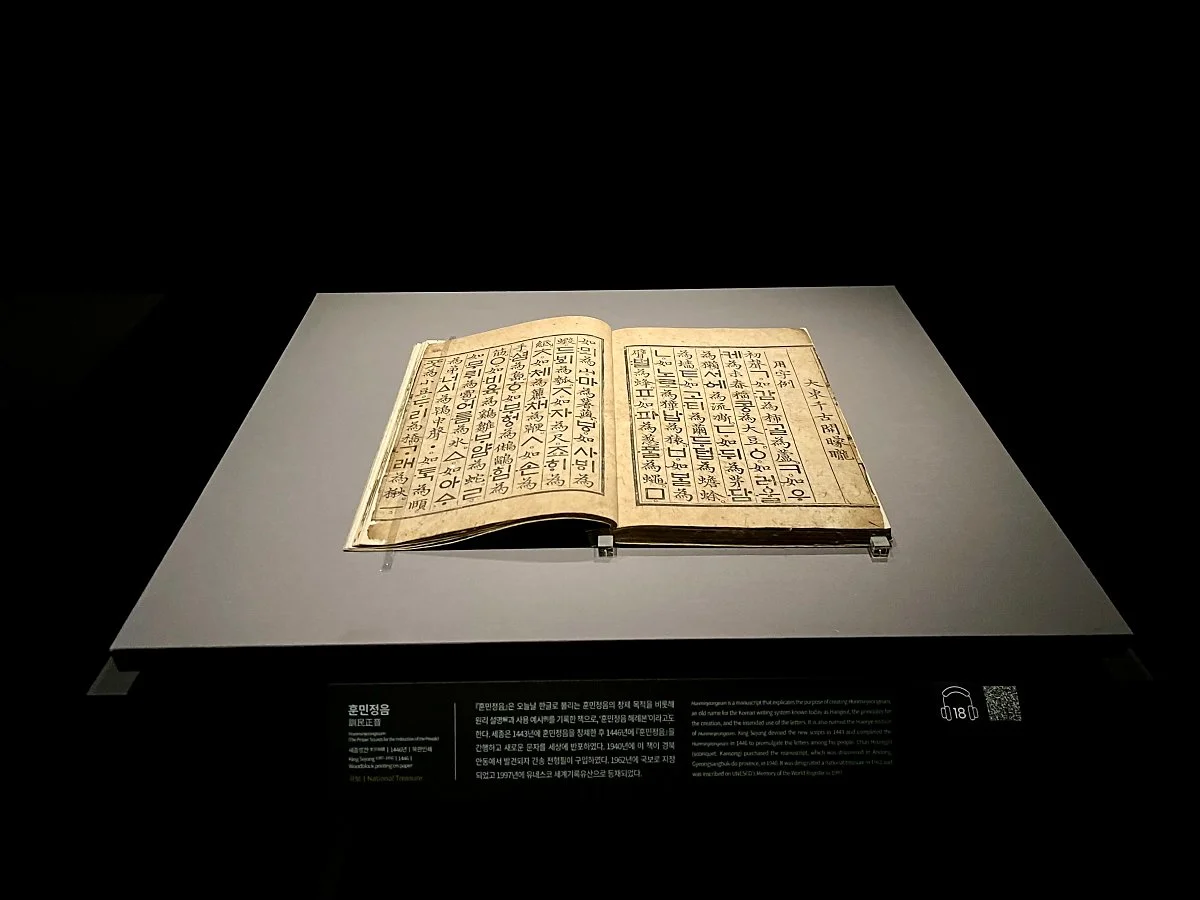 大東千古開矇矓
用字例
初聲ㄱ如감爲柿ᄀᆞᆯ爲蘆ㅋ如우
케爲未舂稻콩爲大豆ㆁ如러울
爲獺서에爲流凘ㄷ如뒤爲茅담
爲墻ㅌ如고티爲繭두텁爲蟾蜍
ㄴ如노로爲獐납爲猿ㅂ如ᄇᆞᆯ爲
臂벌爲蜂ㅍ如파爲葱ᄑᆞᆯ爲蠅ㅁ
如뫼爲山마爲薯藇ㅸ如사ᄫᅵ爲
蝦드ᄫᅴ爲瓠ㅈ如자爲尺죠ᄒᆡ爲
紙ㅊ如체爲籭채爲鞭ㅅ如손爲
手셤爲島ㅎ如부헝爲鵂鶹힘爲
筋ㅇ如비육爲鷄雛ᄇᆞ얌爲蛇ㄹ
如무뤼爲雹어름爲氷ㅿ如아ᅀᆞ
爲弟너ᅀᅵ爲鴇中聲ㆍ如ᄐᆞᆨ爲頤
ᄑᆞᆺ爲小豆ᄃᆞ리爲橋ᄀᆞ래爲楸ㅡ
훈민정음
訓民正音
Hunminjeongeum
(The Proper Sounds for the Instruction of the People)
세종 | 1446년 | 목판인쇄
King Sejong | 1446 |
Woodblock printing on paper
국보 | National Treasure
『훈민정음』은 오늘날 한글로 불리는 훈민정음의 창제 목적을 비롯해
원리 설명과 사용 예시를 기록한 책으로, '훈민정음 해례본'이라고도
한다. 세종은 1443년에 훈민정음을 창제한 후 1446년에 『훈민정음』을
간행하고 새로운 문자를 세상에 반포하였다. 1940년에 이 책이 경북
안동에서 발견되자 간송 전형필이 구입하였다. 1962년에 국보로 지정
되었고 1997년에 유네스코 세계기록유산으로 등재되었다.
Hunminjeongeum is a manuscript that explicates the purpose of creating Hunminjeongeum,
an old name for the Korean writing system known today as Hangeul, the principles for
the creation, and the intended use of the letters. It is also named the Haerye Edition
of Hunminjeongeum. King Sejong devised the new scripts in 1443 and completed the
Hunminjeongeum in 1446 to promulgate the letters among his people. Chun Hyungpil
(sobriquet: Kansong) purchased the manuscript, which was discovered in Andong,
Gyeongsangbuk-do province, in 1940. It was designated a national treasure in 1962 and
was inscribed on UNESCO's Memory of the World Register in 1997.
18